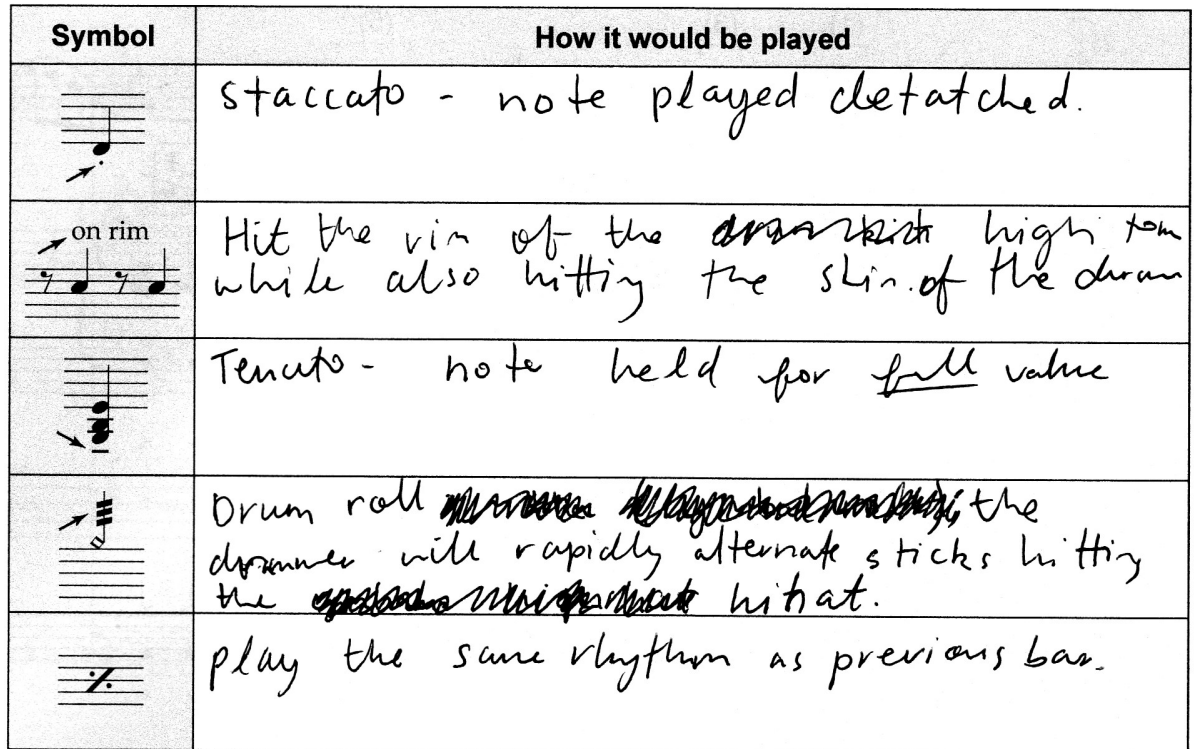 Symbol
How it would be played
staccato - note played detatched.
on rim
Hit the rim of the high tom
while also hitting the skin of the drum
Tenuto - note held for full value
Drum roll the
drummer will rapidly alternate sticks hitting
the hihat.
play the same rhythm as previous bar.